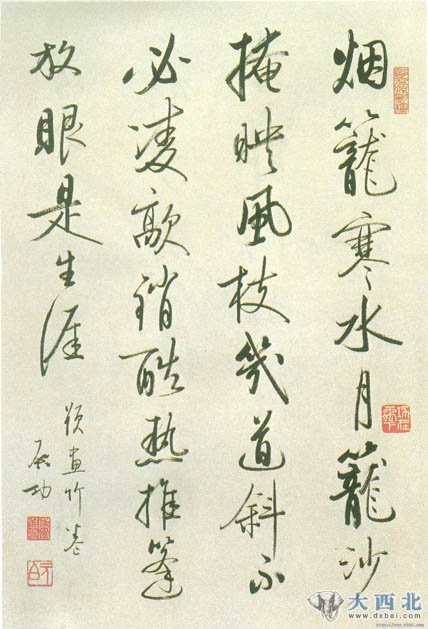 烟籠寒水月籠沙
掩映風枝幾道斜不
必凌歊銷酷熱推篷
放眼是生涯
題畫竹卷
啟功
大西北
www.dxbei.com